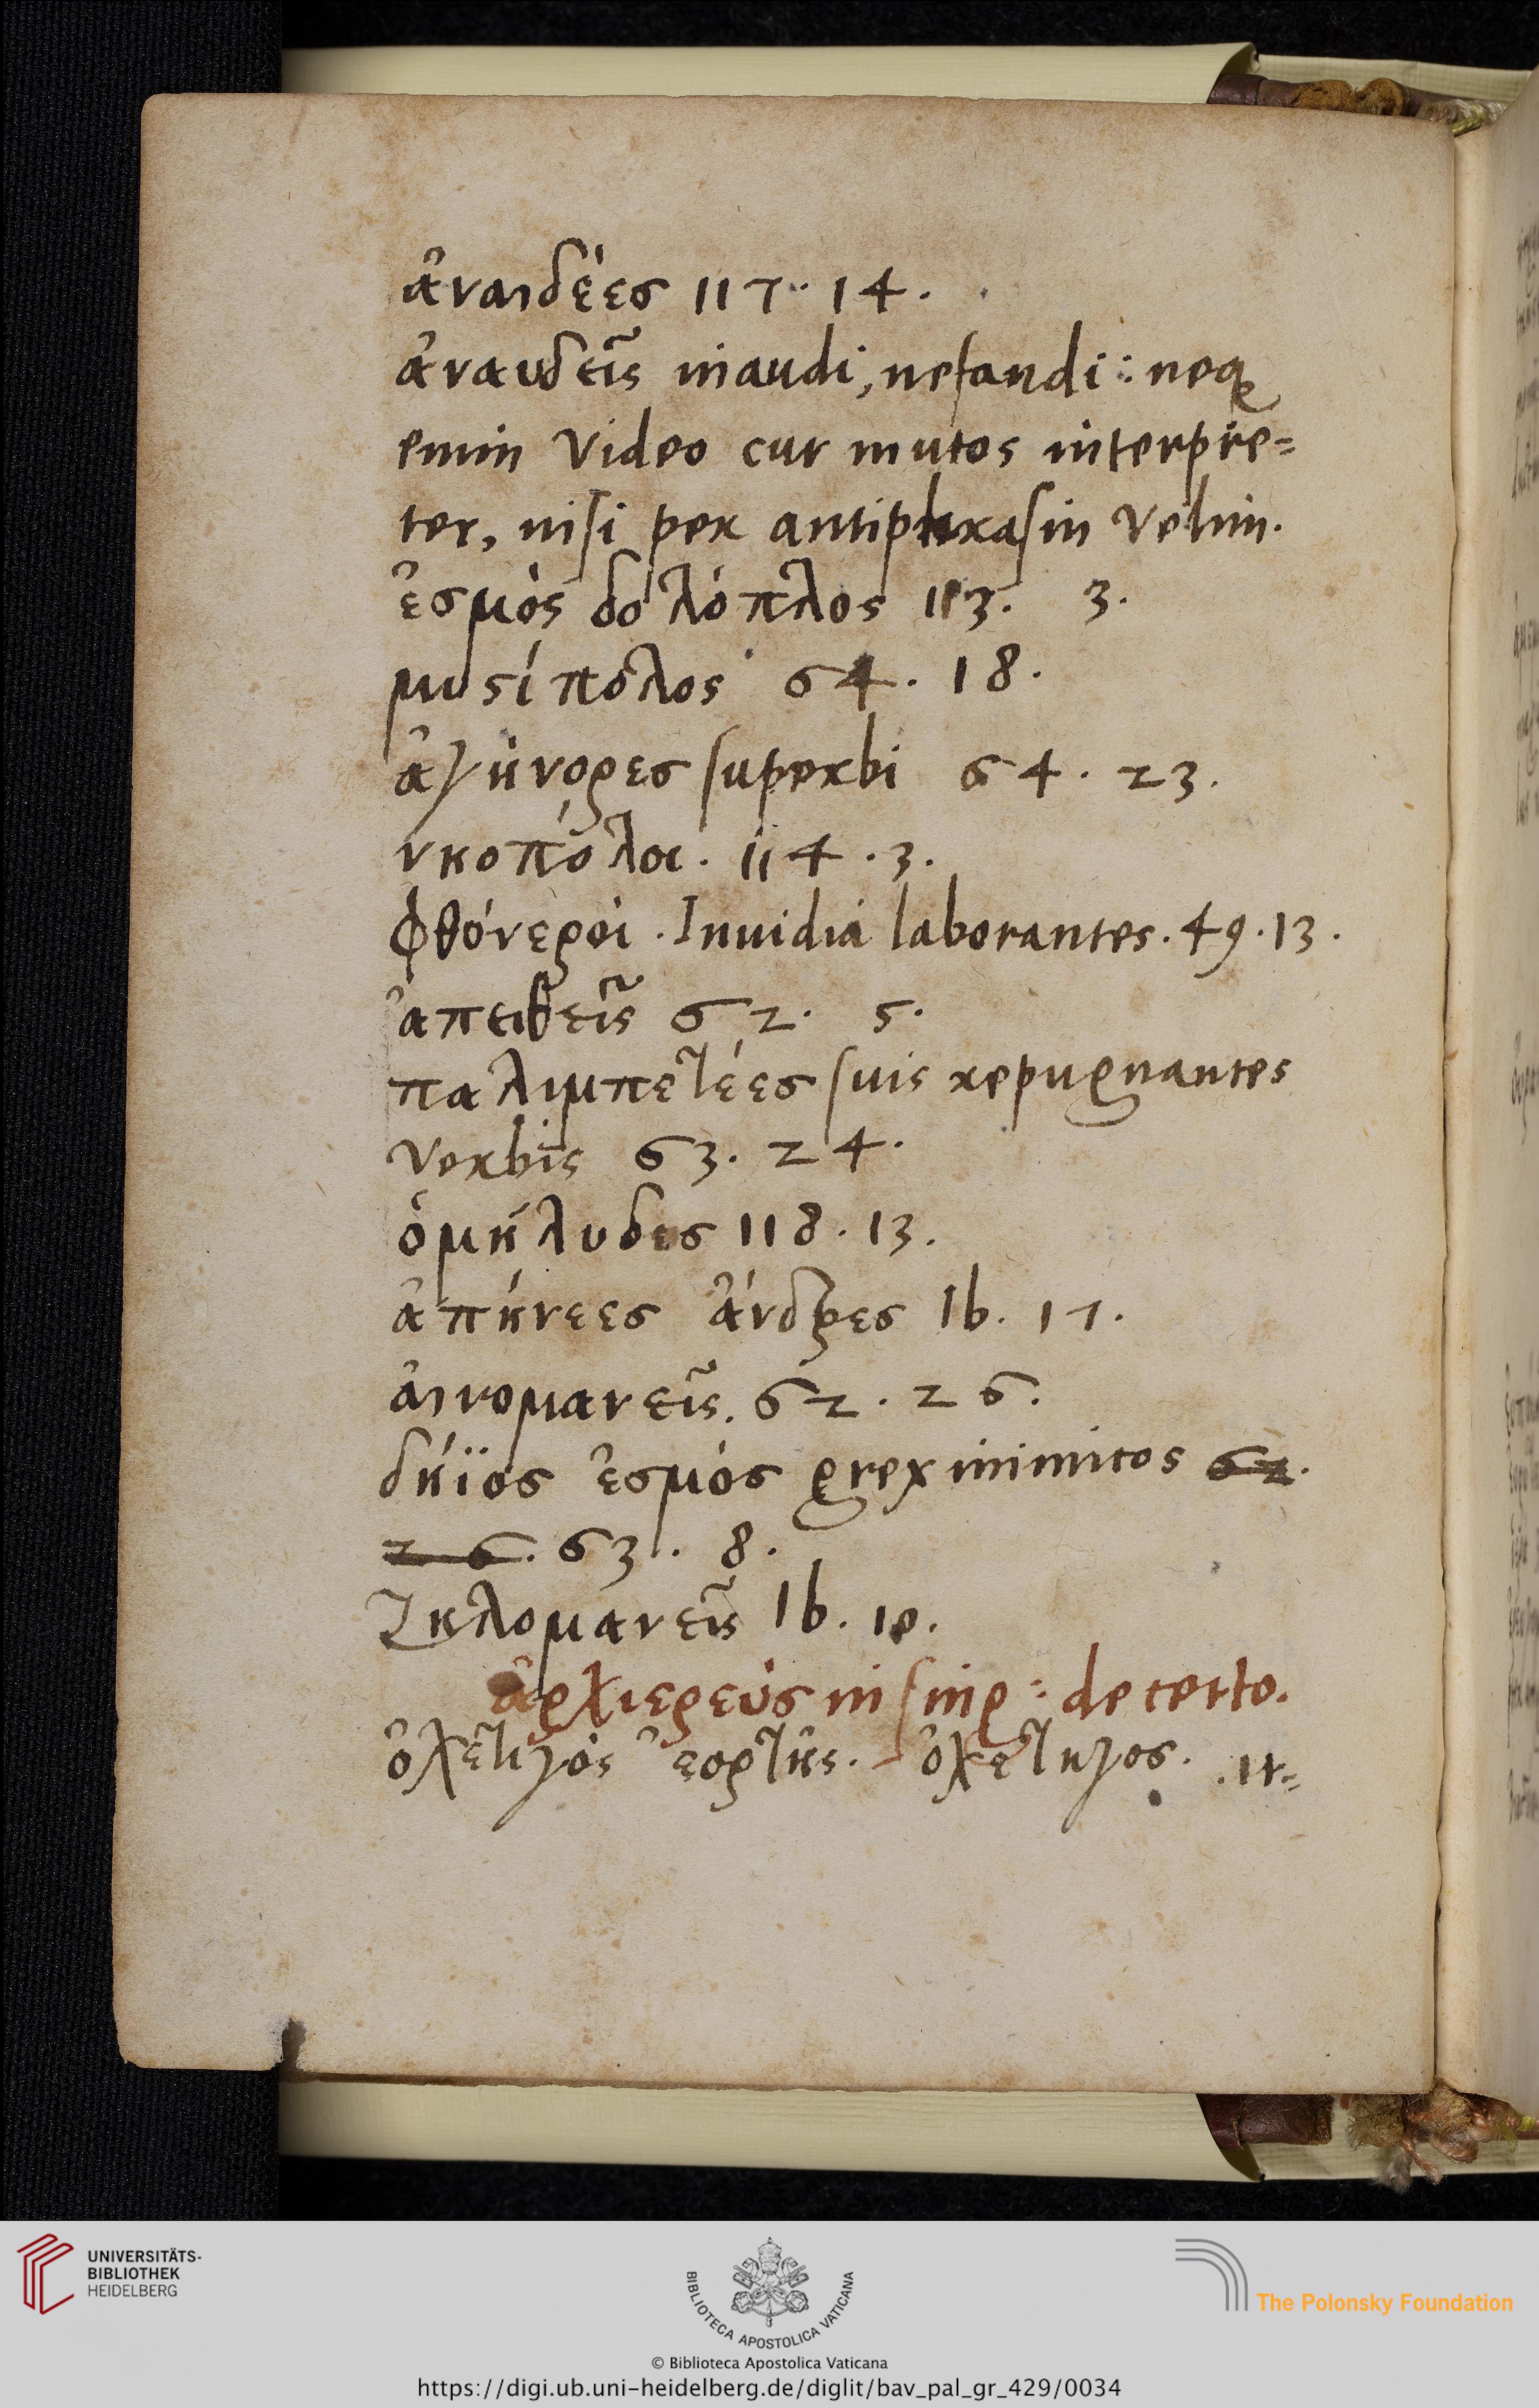 ἀναιδέες 117. 14.
ἀναυδεῖς inaudi, nefandi: neq
enim video cur mutos interpre=
ter, nisi per antiphrasin velim.
ἑσμὸς δολόπλος 113. 3.
μυσίπολος 64. 18.
ἀγήνορες superbi 64. 23.
νηοπόλοι. 114. 3.
φθόνεροί. Inuidiâ laborantes. 49. 13.
ἀπειθεῖς 62. 5.
παλιμπετέες suis repugnantes
verbis 63. 24.
ὁμήλυδες 118. 13.
ἀπήνεες ἄνδρες Ib. 17.
αἰνομανεῖς. 62. 26.
δήϊος ἑσμός grex inimicos 62.
26. 63. 8.
ζηλομανεῖς Ib. 10.
ἀρχιερεύς in sing: de certo.
ὀχετηγὸς ἑορτῆς. - ὀχετηγος.
UNIVERSITÄTS-
BIBLIOTHEK
HEIDELBERG
BIBLIOTECA APOSTOLICA VATICANA
The Polonsky Foundation
© Biblioteca Apostolica Vaticana
https://digi.ub.uni-heidelberg.de/diglit/bav_pal_gr_429/0034